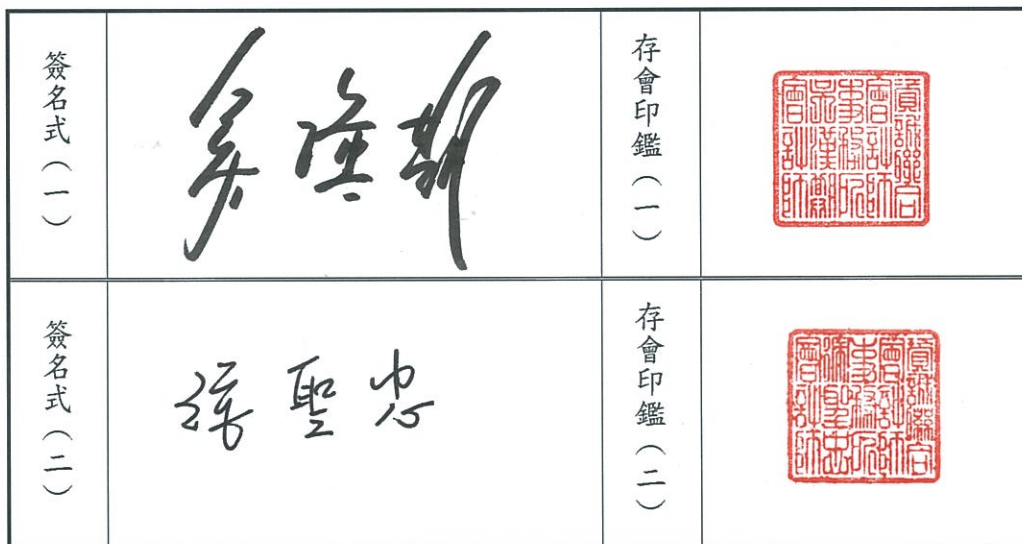 簽名式（一）
吳漢期
存會印鑑（一）
資誠聯合
會計師
事務所
吳漢期
會計師
簽名式（二）
聖忠
存會印鑑（二）
資誠聯合
會計師
事務所
聖忠
會計師